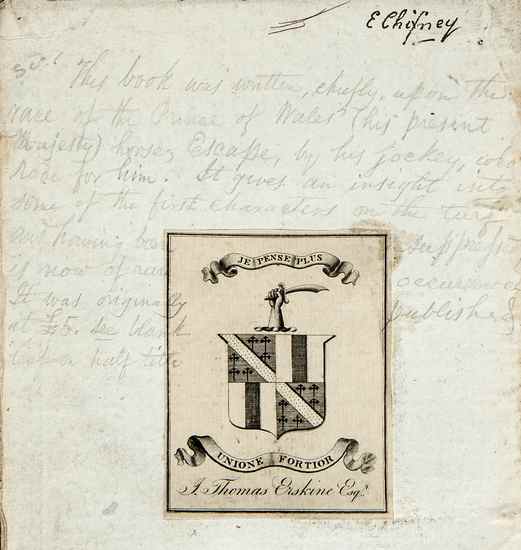 E Chifney
Sir! This book was written, chiefly, upon the
race of the Prince of Wales' (his present
Majesty) horse, Escape, by his jockey, who
rode for him. It gives an insight into
some of the first characters on the turf
and having been suppressed
is now of rare occurrence
It was originally published
at £5. see blank
leaf or half title
JE PENSE PLUS
UNIONE FORTIOR
J. Thomas Erskine Esqr.